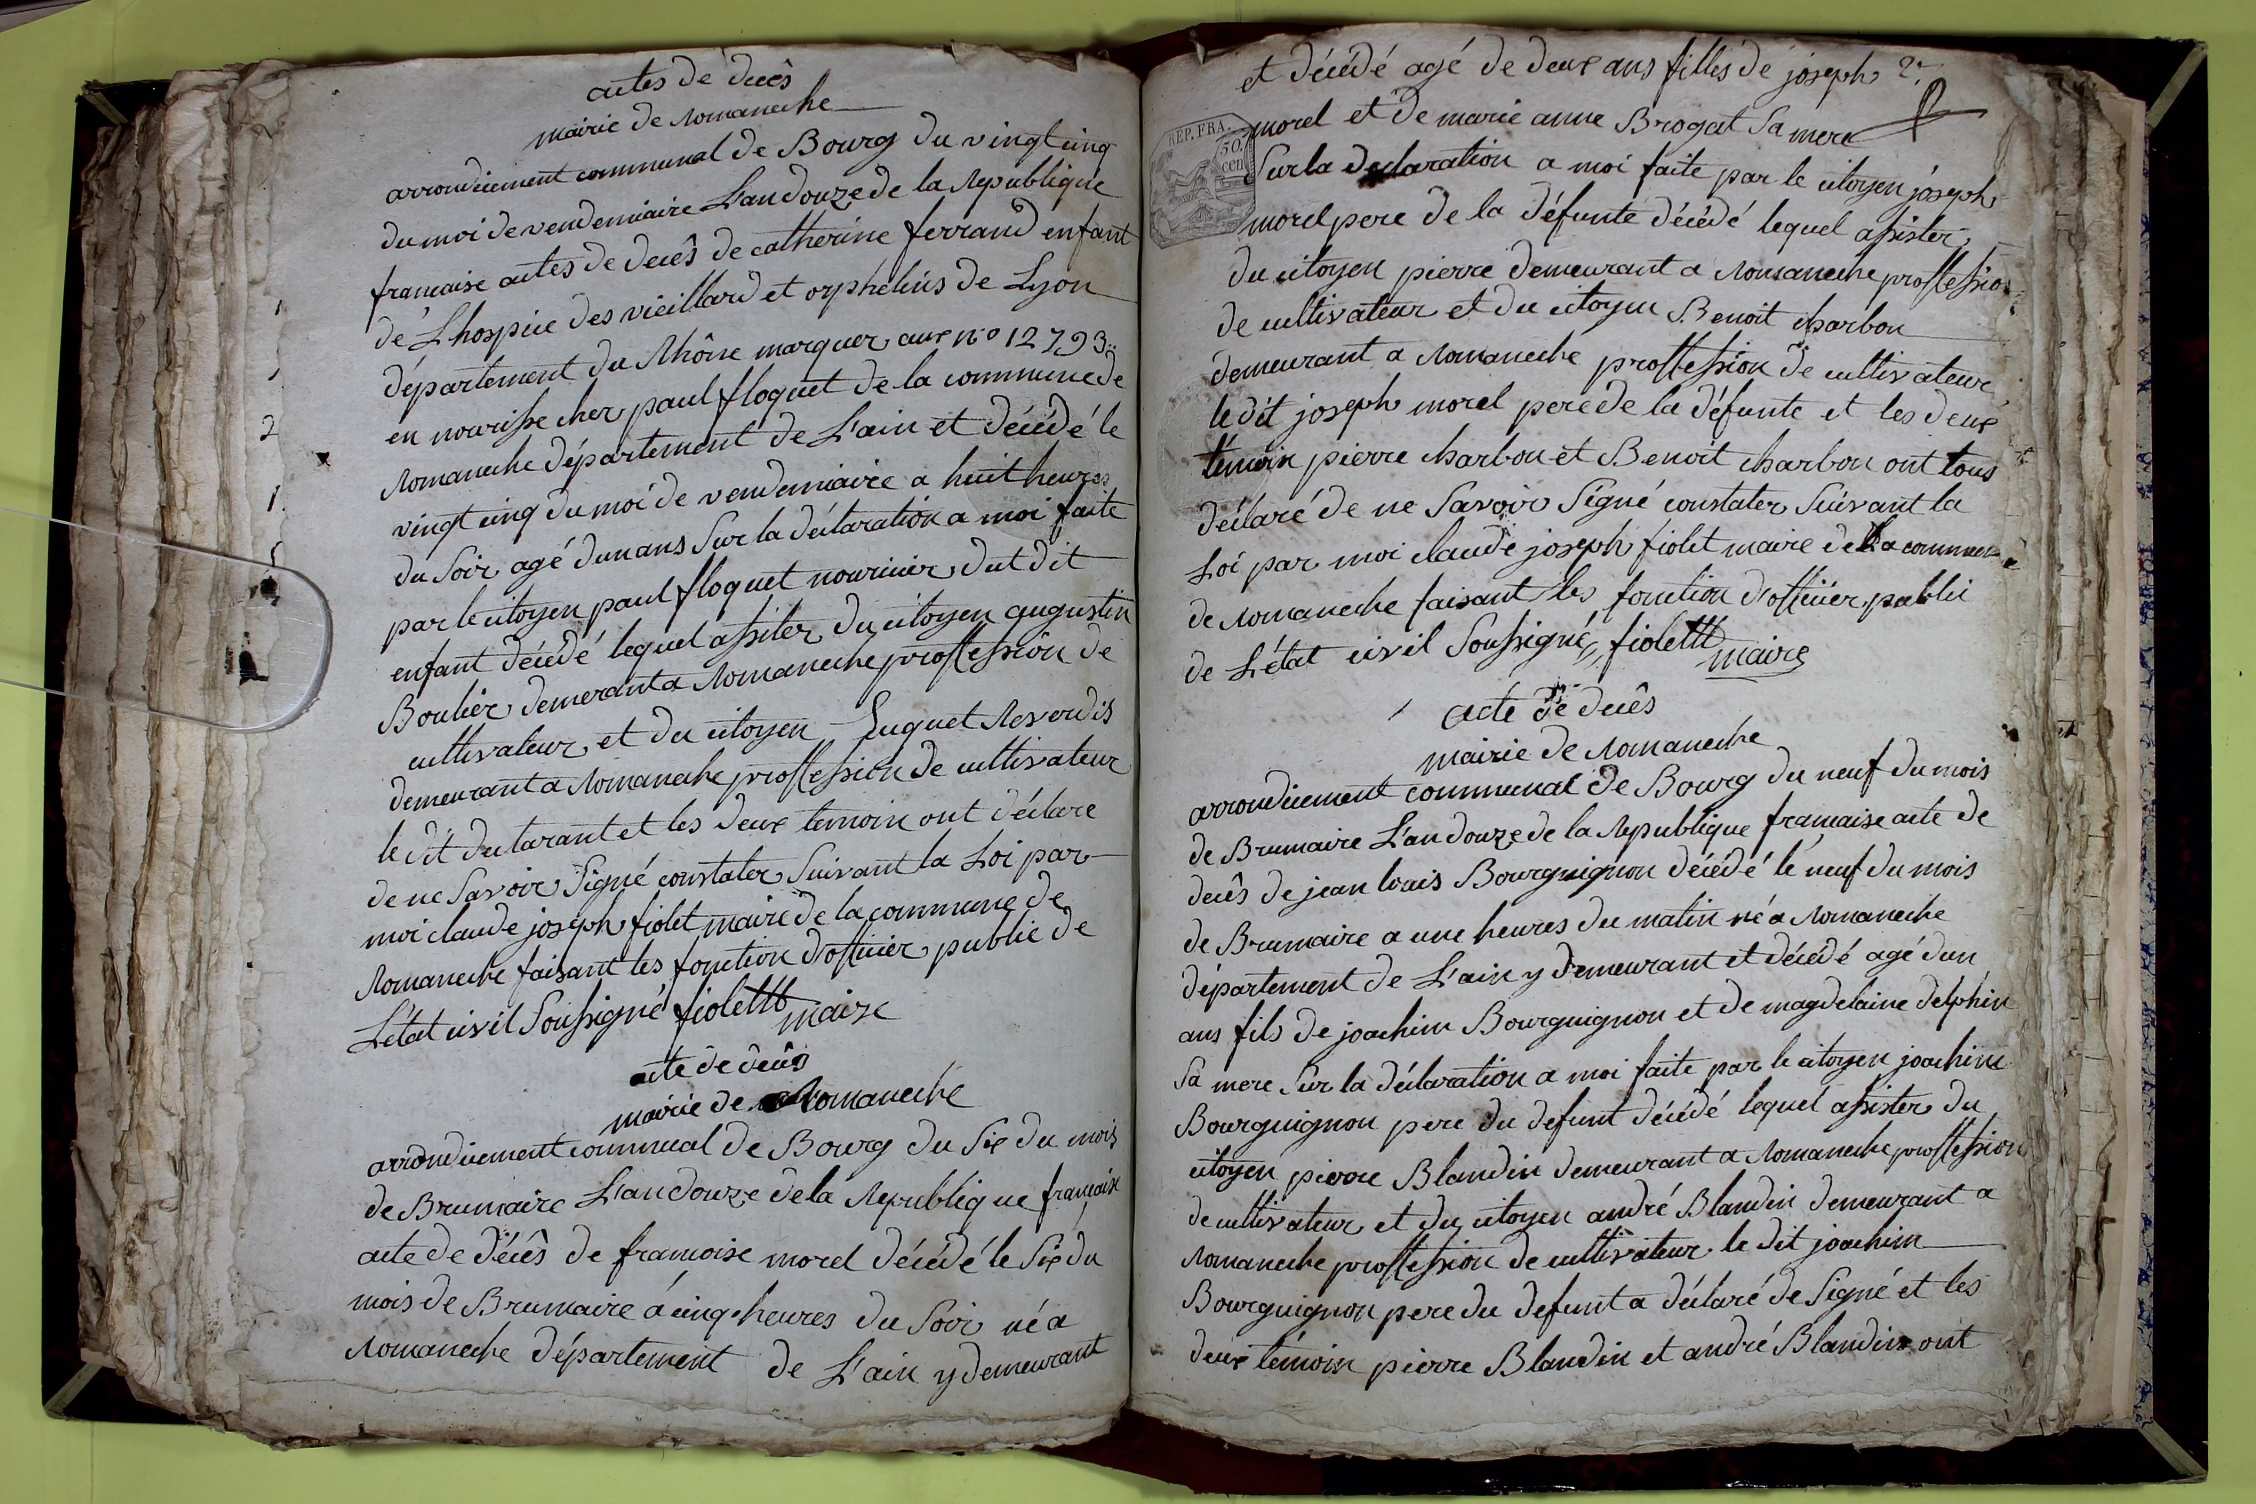 actes de decês
mairie de Romaneche
arrondicement communal de Bourg du vingt cinq
du moi de vendemiaire L'an douze de la Republique
francaise actes de decês de catherine ferrand enfant
de L'hospice des vieillard et orphelins de Lyon
département du Rhône marquer aux no 12793
en nourisse cher paul floquet de la commune de
Romaneche département de L'ain et décédé le
vingt cinq du moi de vendemiaire a huit heures
du Soir agé dun ans Sur la déclaration a moi faite
par le citoyen paul floquet nouricier dut dit
enfant décédé lequel assiter du citoyen augustin
Boulier demerant a Romaneche proffession de
cultivateur et du citoyen Luquet Reverdis
demeurant a Romaneche proffession de cultivateur
le dit declarant et les deux temoin ont déclare
de ne Savoir Signé constater Suivant la Loi par
moi claude joseph fiolet maire de la commune de
Romaneche faisant les fonction d'officier public de
L'état civil Soussigné fiolet
maire
acte de decês
mairie de Romaneche
arrondicement communal de Bourg du Six du mois
de Brumaire L'an douze de la Republique française
acte de décês de francoise morel décédé le Six du
mois de Brumaire à cinq heures du Soir né a
Romaneche département de L'ain y demeurant
et décédé agé de deux ans filles de joseph
morel et de marie anne Brogat Sa mere
REP. FRA.
50.
cen
Sur la declaration a moi faite par le citoyen joseph
morel pere de la défunte décédé lequel assister
du citoyen pierre demeurant a Romaneche proffession
de cultivateur et du citoyen Benoit charbon
demeurant a Romaneche proffession de cultivateur
le dit joseph morel pere de la défunte et les deux
témoin pierre charbon et Benoit charbon ont tous
déclaré de ne Savoir Signé constater Suivant la
Loi par moi claude joseph fiolet maire de la commune
de Romaneche faisant les fonction d'officier public
de L'état civil Soussigné fiolet
maire
acte de decês
mairie de Romaneche
arrondicement communal de Bourg du neuf du mois
de Brumaire L'an douze de la Republique francaise acte de
decês de jean louis Bourguignon décédé le neuf du mois
de Brumaire a une heures du matin né a Romaneche
département de L'ain y demeurant et décédé agé dun
ans fils de joachim Bourguignon et de magdelaine delphin
Sa mere Sur la déclaration a moi faite par le citoyen joachim
Bourguignon pere du defunt décédé lequel assister du
citoyen pierre Blandin demeurant a Romaneche proffession
de cultivateur et du citoyen andré Blandin demeurant a
Romaneche proffession de cultivateur le dit joachim
Bourguignon pere du defunt a déclaré de Signé et les
deux témoin pierre Blandin et andré Blandin ont